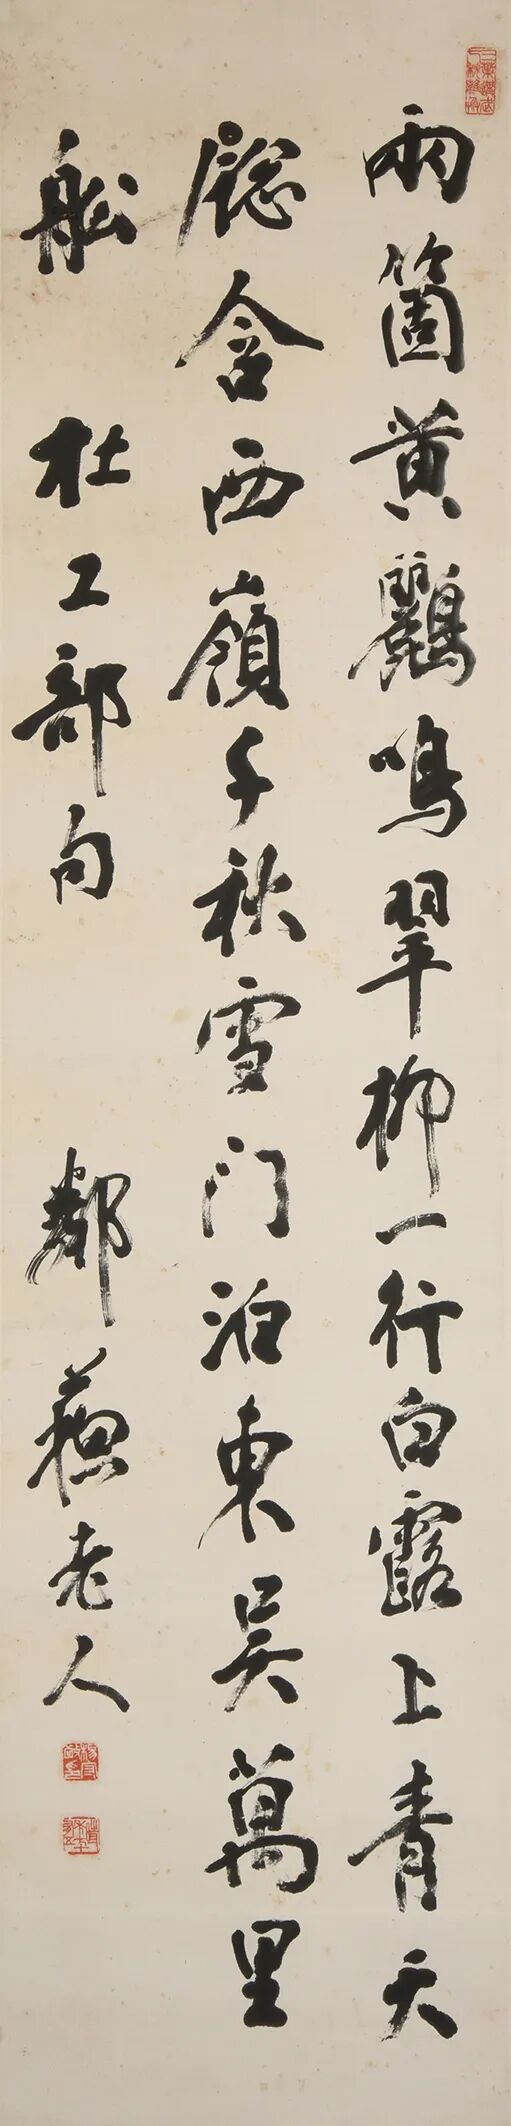 兩箇黄鸝鳴翠柳一行白露上青天
窓含西嶺千秋雪门泊東吳萬里
舩 杜工部句 鄰蘇老人